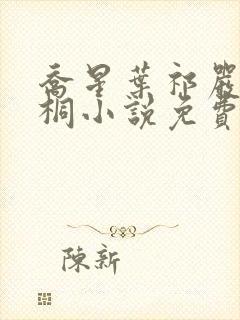 喬星葉祁嚴
桐小說免費
陳新